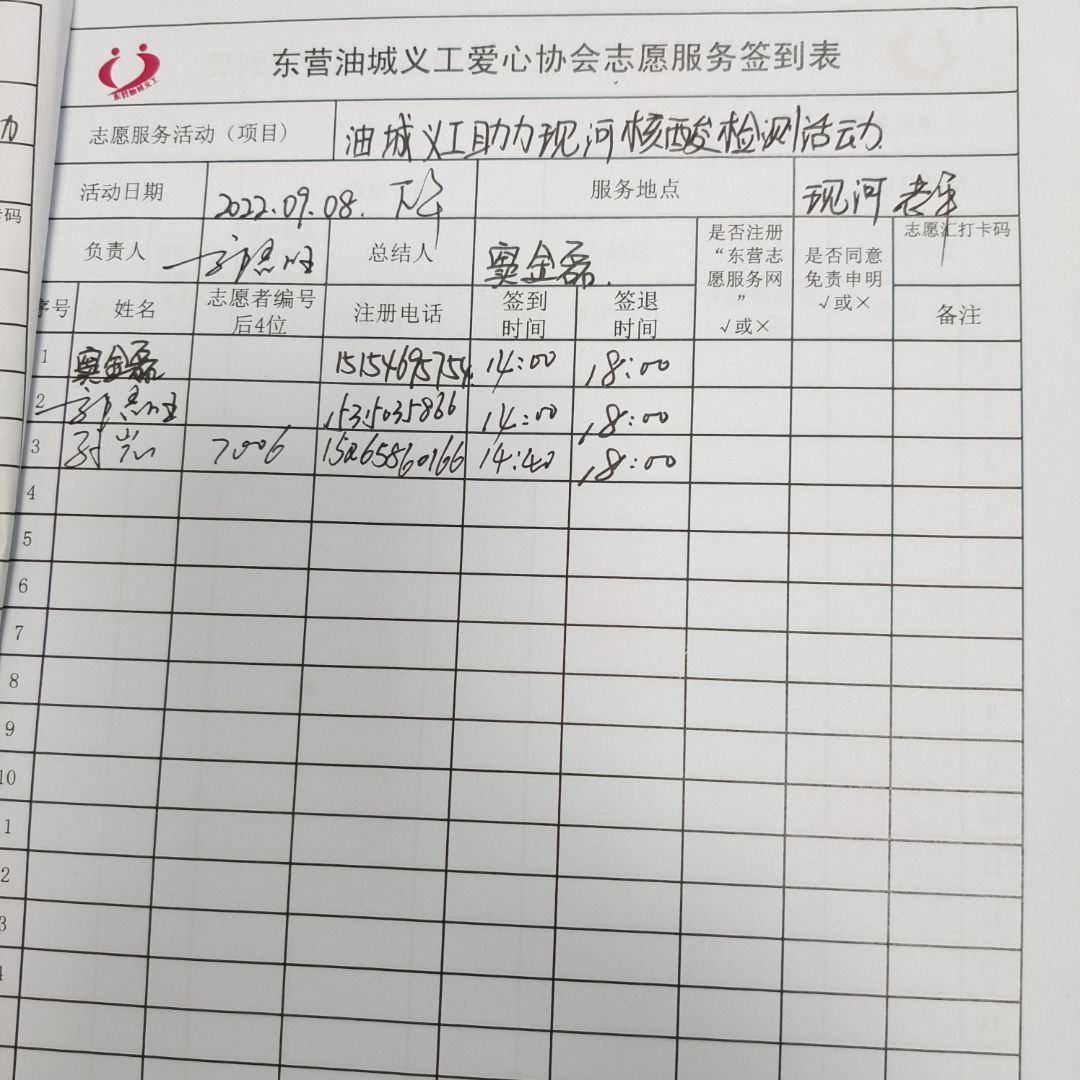 东营油城义工爱心协会志愿服务签到表
东营油城义工
志愿服务活动（项目） 油城义工助力现河核酸检测活动.
活动日期 2022.09.08. 下午 服务地点 现河
负责人 总结人 窦金磊. 是否注册“东营志愿服务网” √或× 是否同意免责申明 √或× 志愿汇打卡码
序号 姓名 志愿者编号后4位 注册电话 签到时间 签退时间 备注
1 窦金磊 15154695754. 14:00 18:00
2 15315035866 14:00 18:00
3 7006 15065860166 14:40 18:00
4
5
6
7
8
9
10